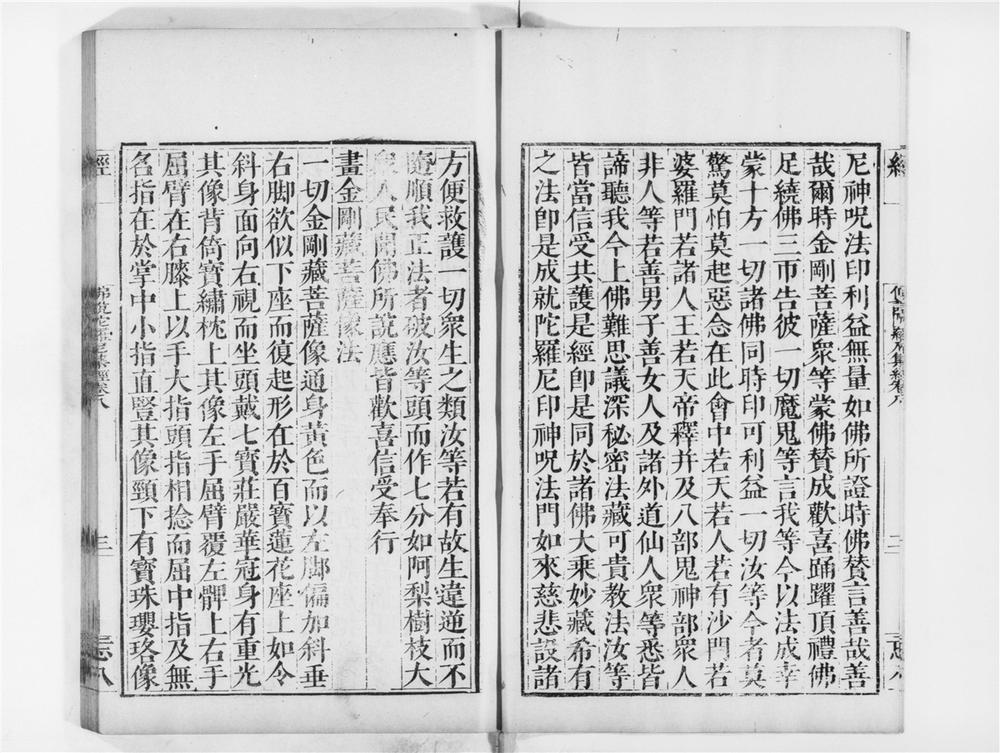 尼神呪法印利益無量如佛所證時佛賛言善哉善
哉爾時金剛菩薩衆等蒙佛賛成歡喜踊躍頂禮佛
足繞佛三帀告彼一切魔鬼等言我等今以法成幸
蒙十方一切諸佛同時印可利益一切汝等今者莫
驚莫怕莫起惡念在此會中若天若人若有沙門若
婆羅門若諸人王若天帝釋并及八部鬼神部衆人
非人等若善男子善女人及諸外道仙人衆等悉皆
諦聽我今上佛難思議深秘密法藏可貴教法汝等
皆當信受共護是經卽是同於諸佛大乘妙藏希有
之法卽是成就陀羅尼印神呪法門如來慈悲設諸
方便救護一切衆生之類汝等若有故生違逆而不
遵順我正法者彼汝等頭而作七分如阿梨樹枝大
衆人民聞佛所說應皆歡喜信受奉行
畫金剛藏菩薩像法
一切金剛藏菩薩像通身黃色而以左脚偏加斜垂
右脚欲似下座而復起形在於百寶蓮花座上如令
斜身面向右視而坐頭戴七寶莊嚴華冠身有重光
其像背倚寶繡枕上其像左手屈臂覆左髀上右手
屈臂在右膝上以手大指頭指相捻而屈中指及無
名指在於掌中小指直豎其像頸下有寶珠瓔珞像
經
佛說陀羅尼集經卷八
三